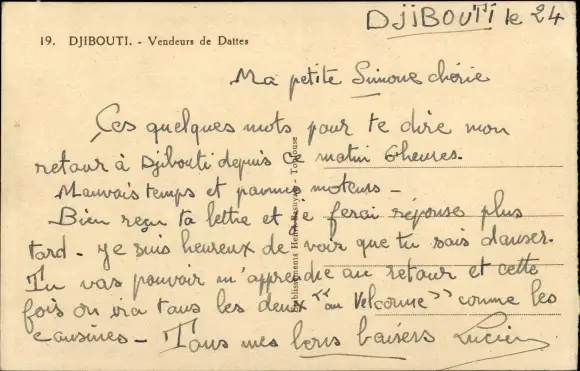 DJIBOUTI le 24
19. DJIBOUTI. - Vendeurs de Dattes
Ma petite Simone chérie
Ces quelques mots pour te dire mon
retour à Djibouti depuis ce matin 6 heures.
Mauvais temps et pannes moteurs -
Bien reçu ta lettre et je ferai réponses plus
tard - je suis heureux de voir que tu sais danser.
Tu vas pouvoir m'apprendre au retour et cette
fois on ira tous les deux "au Velcome" comme les
cousines - Tous mes bons baisers Lucien
Etablissements Henri - Toulouse